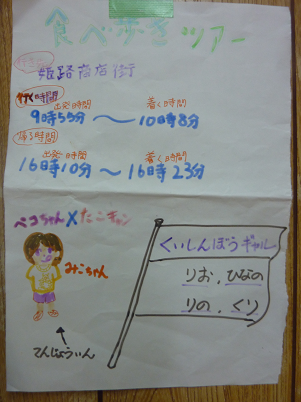 食べ歩きツアー
行き先
姫路商店街
行く時間
出発時間 着く時間
9時55分～10時8分
帰る時間
出発時間 着く時間
16時10分～16時23分
ペコちゃん×たこキャン
みこちゃん
てんじょういん
くいしんぼうギャル
りお、ひなの
りの、くり